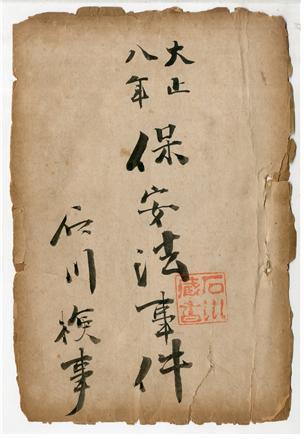 大正
八年
保安法事件
石川検事
石川
蔵書